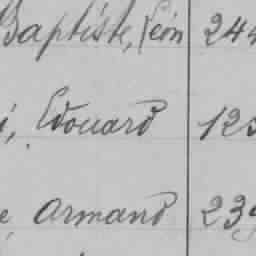 Baptiste, Léon 244
i, Edouard 125
e, Armand 239